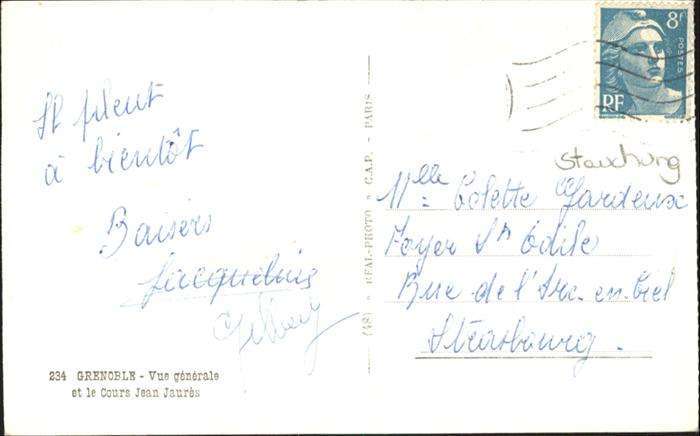 Il pleut
à bientôt
Baisers
Jacqueline
234 GRENOBLE - Vue générale
et le Cours Jean Jaurès
(48) - REAL-PHOTO - C.A.P. - PARIS
8F
POSTES
RF
Mlle Colette Jardeux
Foyer Ste Odile
Rue de l'Arc-en-Ciel
Strasbourg.